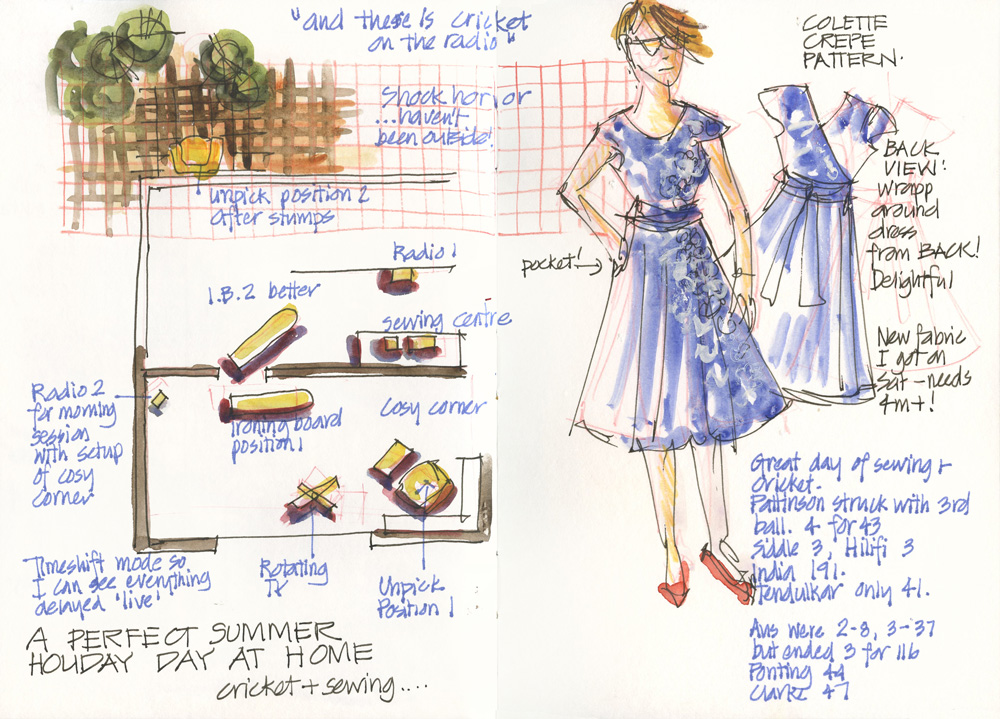 "and there is cricket
on the radio"
Shock horror
...haven't
been outside!
Unpick position 2
after stumps
Radio 1
I.B.2 better
sewing centre
Radio 2
for morning
session
with setup
of cosy
corner
Ironing board
position 1
Cosy corner
Timeshift mode so
I can see everything
delayed 'live'
Rotating
TV
Unpick
Position 1
A PERFECT SUMMER
HOLIDAY DAY AT HOME
cricket + sewing....
COLETTE
CREPE
PATTERN.
pocket!
BACK
VIEW:
wrapp
around
dress
from BACK!
Delightful
New fabric
I got on
Sat - needs
4m+!
Great day of sewing +
cricket.
Pattinson struck with 3rd
ball. 4 for 43
Siddle 3, Hilfi 3
India 191.
Tendulkar only 41.
Aus were 2-8, 3-37
but ended 3 for 116
Ponting 44
Clarke 47